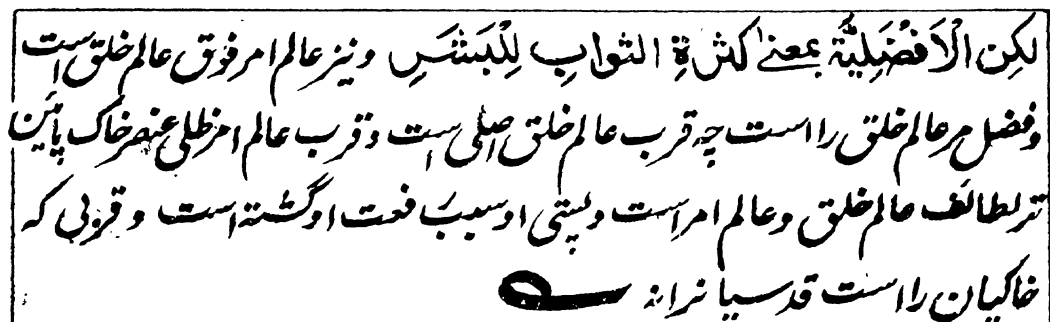 لٰكِن الْاَفْضَلِيَّة بمعنىٰ كثرةِ الثوابِ لِلْبَشَرِ و نیز عالم امر فوق عالم خلق است
و فضل مر عالم خلق را است چه قرب عالم خلق اصلی است و قرب عالم امر ظلی عنصر خاک پائین
تر لطائف عالم خلق و عالم امر است و پستی او سبب رفعت او گشته است و قربی که
خاکیان را است قدسیا نرا نه